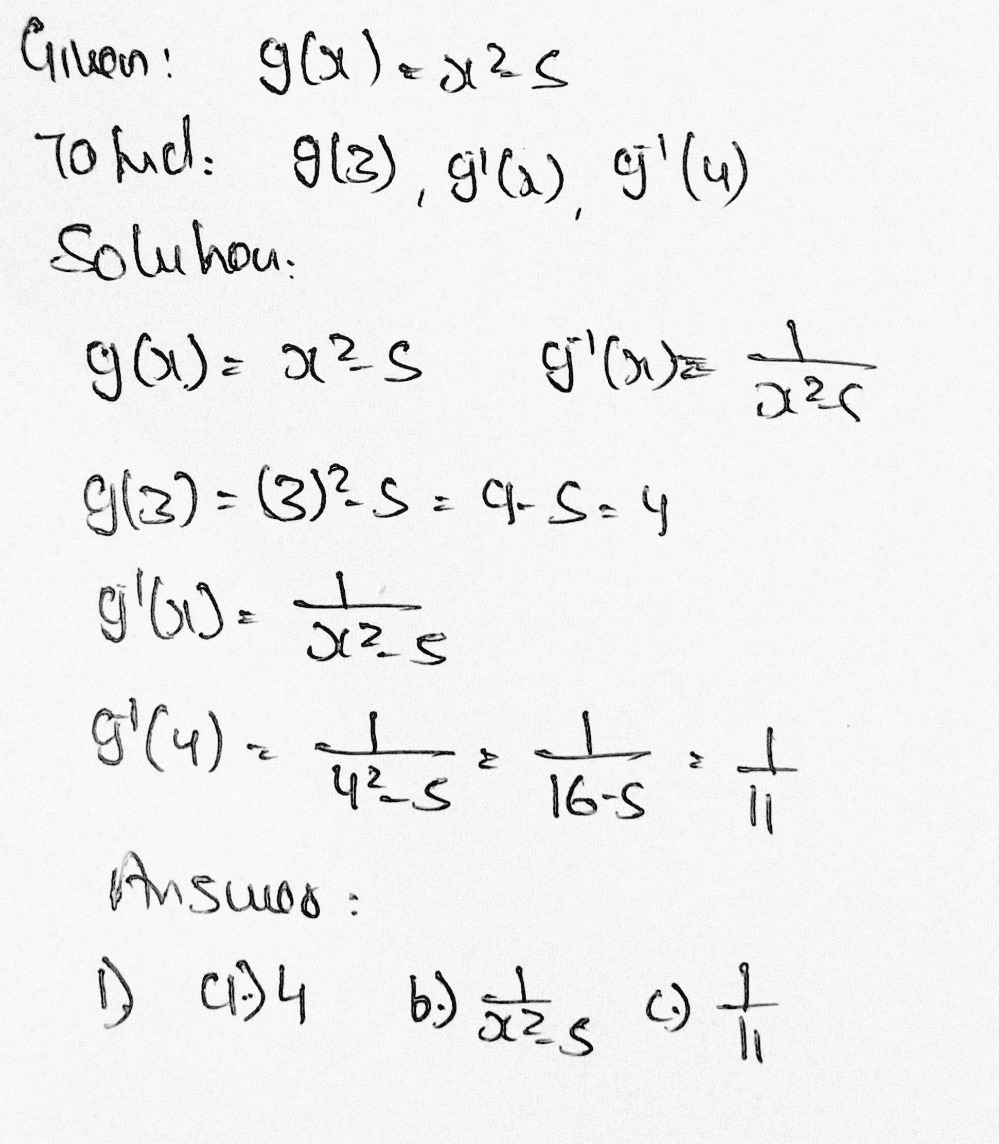 Given: g(x) = x²-5
To find: g(3), g⁻¹(x), g⁻¹(4)
Solution:
g(x) = x²-5 g⁻¹(x) = 1/(x²-5)
g(3) = (3)²-5 = 9-5 = 4
g⁻¹(x) = 1/(x²-5)
g⁻¹(4) = 1/(4²-5) = 1/(16-5) = 1/11
Answer:
1) a.) 4 b.) 1/(x²-5) c.) 1/11